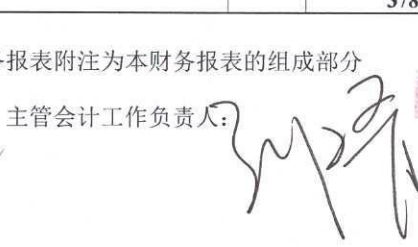 378
报表附注为本财务报表的组成部分
主管会计工作负责人：